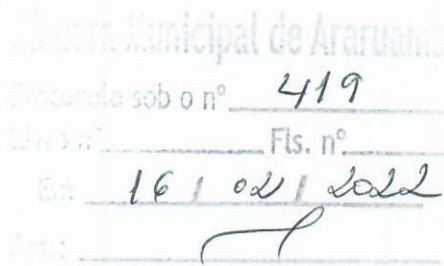 Câmara Municipal de Araruama
Protocolo sob o nº 419
Livro nº Fls. nº
Em: 16 / 02 / 2022
Ass.: